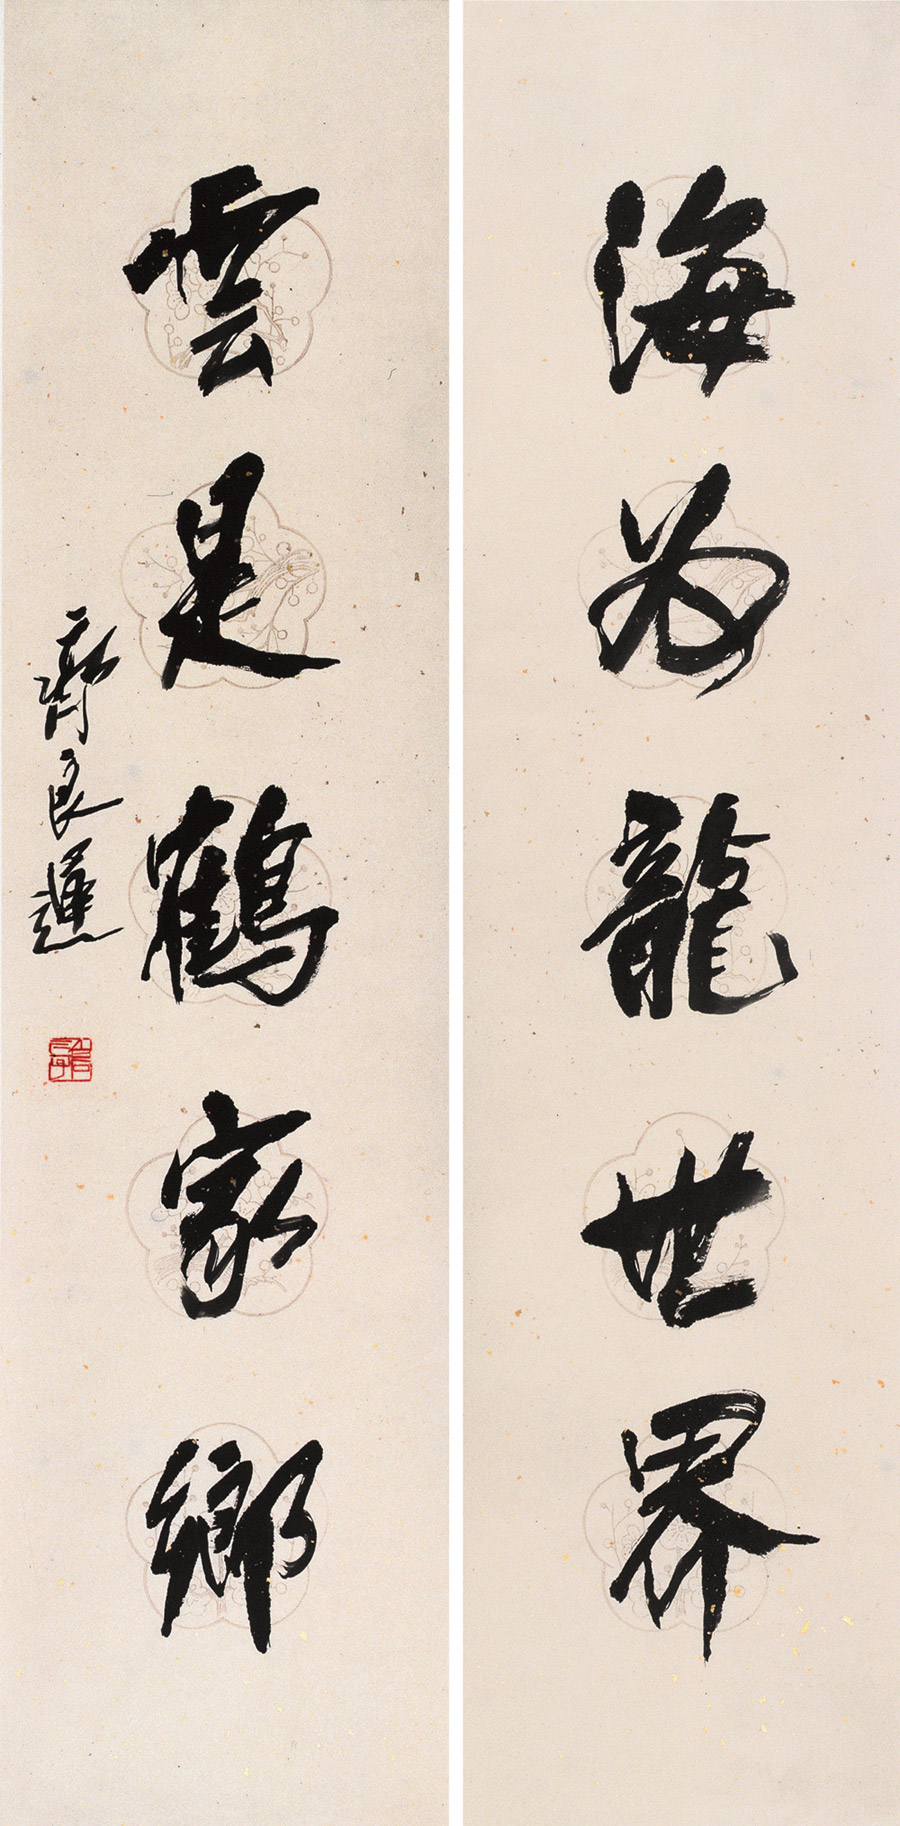 海为龍世界
雲是鶴家鄉
齊良遲